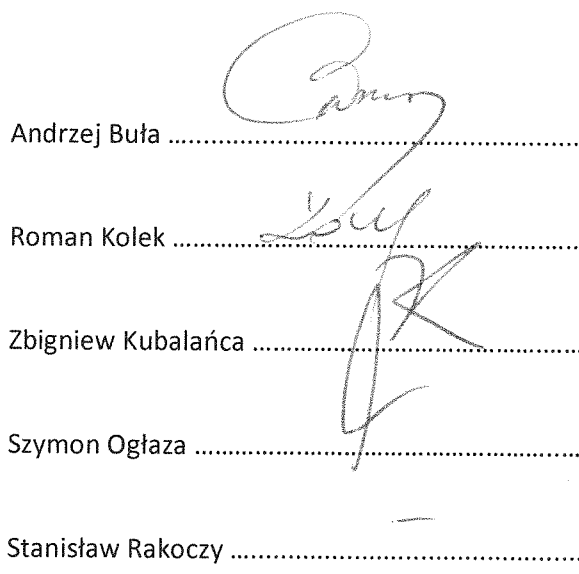 Andrzej Buła ..........................................................
Roman Kolek ..........................................................
Zbigniew Kubalańca ..............................................
Szymon Ogłaza ......................................................
Stanisław Rakoczy .................................................